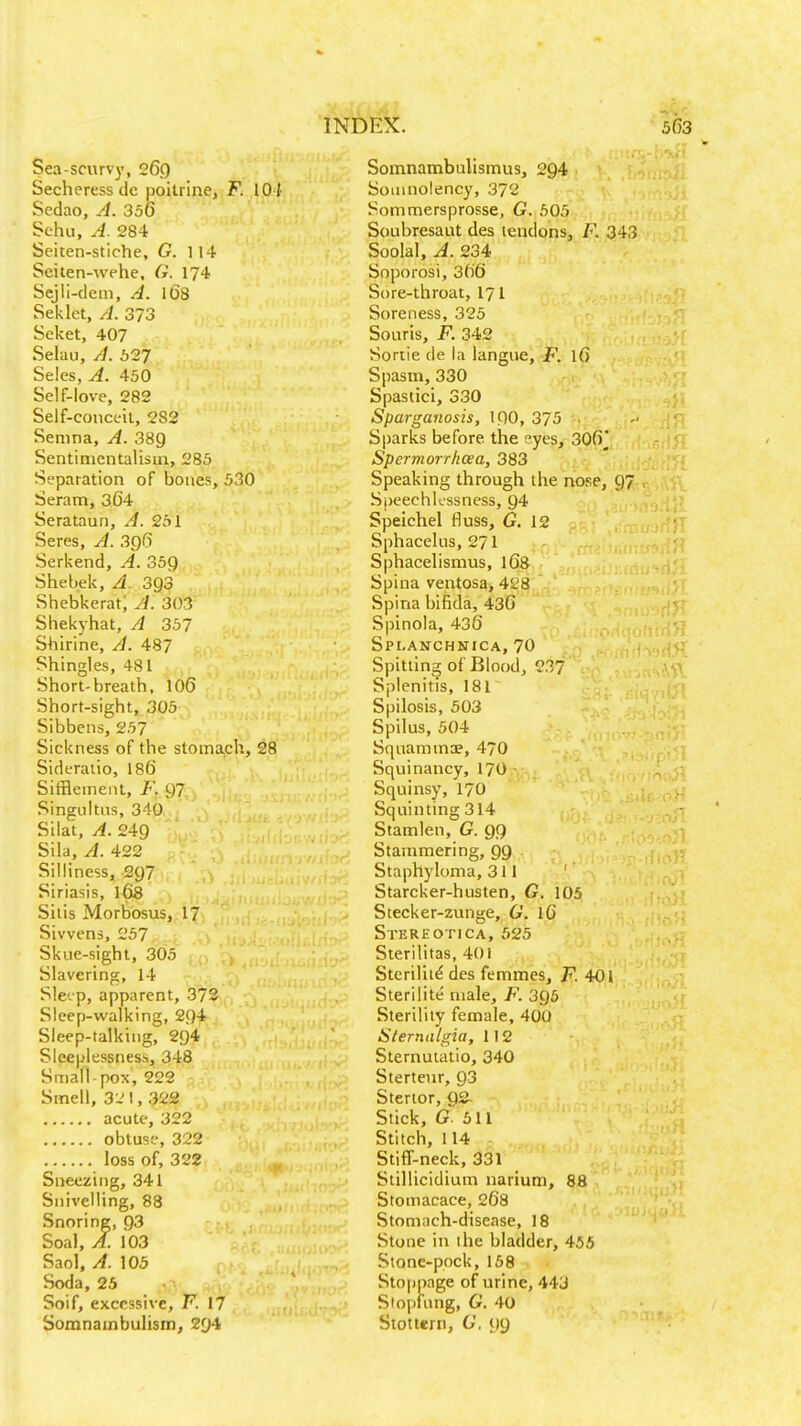 INDEX. 563
Sea-scurvy, 269
Secheress de poitrine, F. 104
Sedao, A. 356
Sehu, A. 284
Seiten-stiche, G. 114
Seiten-wehe, G. 174
Sejli-dem, A. 168
Seklet, A. 373
Seket, 407
Selau, A. 527
Seles, A. 450
Self-love, 282
Self-conceit, 282
Semna, A. 389
Sentimentalism, 285
Separation of bones, 530
Seram, 364
Serataun, A. 251
Seres, A. 396
Serkend, A. 359
Shebek, A. 393
Shebkerat, A. 303
Shekyhat, A 357
Shirine, A. 487
Shingles, 481
Short-breath, 106
Short-sight, 305
Sibbens, 257
Sickness of the stomach, 28
Sideratio, 186
Sifflement, F. 97
Singultus, 340
Silat, A. 249
Sila, A. 422
Silliness, 297
Siriasis, 168
Sitis Morbosus, 17
Sivvens, 257
Skue-sight, 305
Slavering, 14
Sleep, apparent, 372
Sleep-walking, 294
Sleep-talking, 294
Sleeplessness, 348
Small-pox, 222
Smell, 321, 322
...... acute, 322
...... obtuse, 322
...... loss of, 322
Sneezing, 341
Snivelling, 88
Snoring, 93
Soal, A. 103
Saol, A. 105
Soda, 25
Soif, excessive, F. 17
Somnambulism, 294
Somnambulismus, 294
Somnolency, 372
Sommersprosse, G. 505
Soubresaut des tendons, F. 343
Soolal, A. 234
Soporosi, 366
Sore-throat, 171
Soreness, 325
Souris, F. 342
Sortie de la langue, F. 16
Spasm, 330
Spastici, 330
Sparganosis, 190, 375
Sparks before the eyes, 306
Spermorrhœa, 383
Speaking through the nose, 97
Speechlessness, 94
Speichel fluss, G. 12
Sphacelus, 271
Sphacelismus, 168
Spina ventosa, 428
Spina bifida, 436
Spinola, 436
SPLANCHNICA, 70
Spitting of Blood, 237
Splenitis, 181
Spilosis, 503
Spilus, 504
Squammæ, 470
Squinancy, 170
Squinsy, 170
Squinting 314
Stamlen, G. 99
Stammering, 99
Staphyloma, 311
Starcker-husten, G. 105
Stecker-zunge, G. 16
STEREOTICA, 525
Sterilitas, 401
Sterilité des femmes, F. 401
Sterilité male, F. 395
Sterility female, 400
Sternalgia, 112
Sternutatio, 340
Sterteur, 93
Stertor, 92
Stick, G. 511
Stitch, 114
Stiff-neck, 331
Stillicidium narium, 88
Stomacace, 268
Stomach-disease, 18
Stone in the bladder, 455
Stone-pock, 158
Stoppage of urine, 443
Stopfung, G. 40
Stottern, G. 99